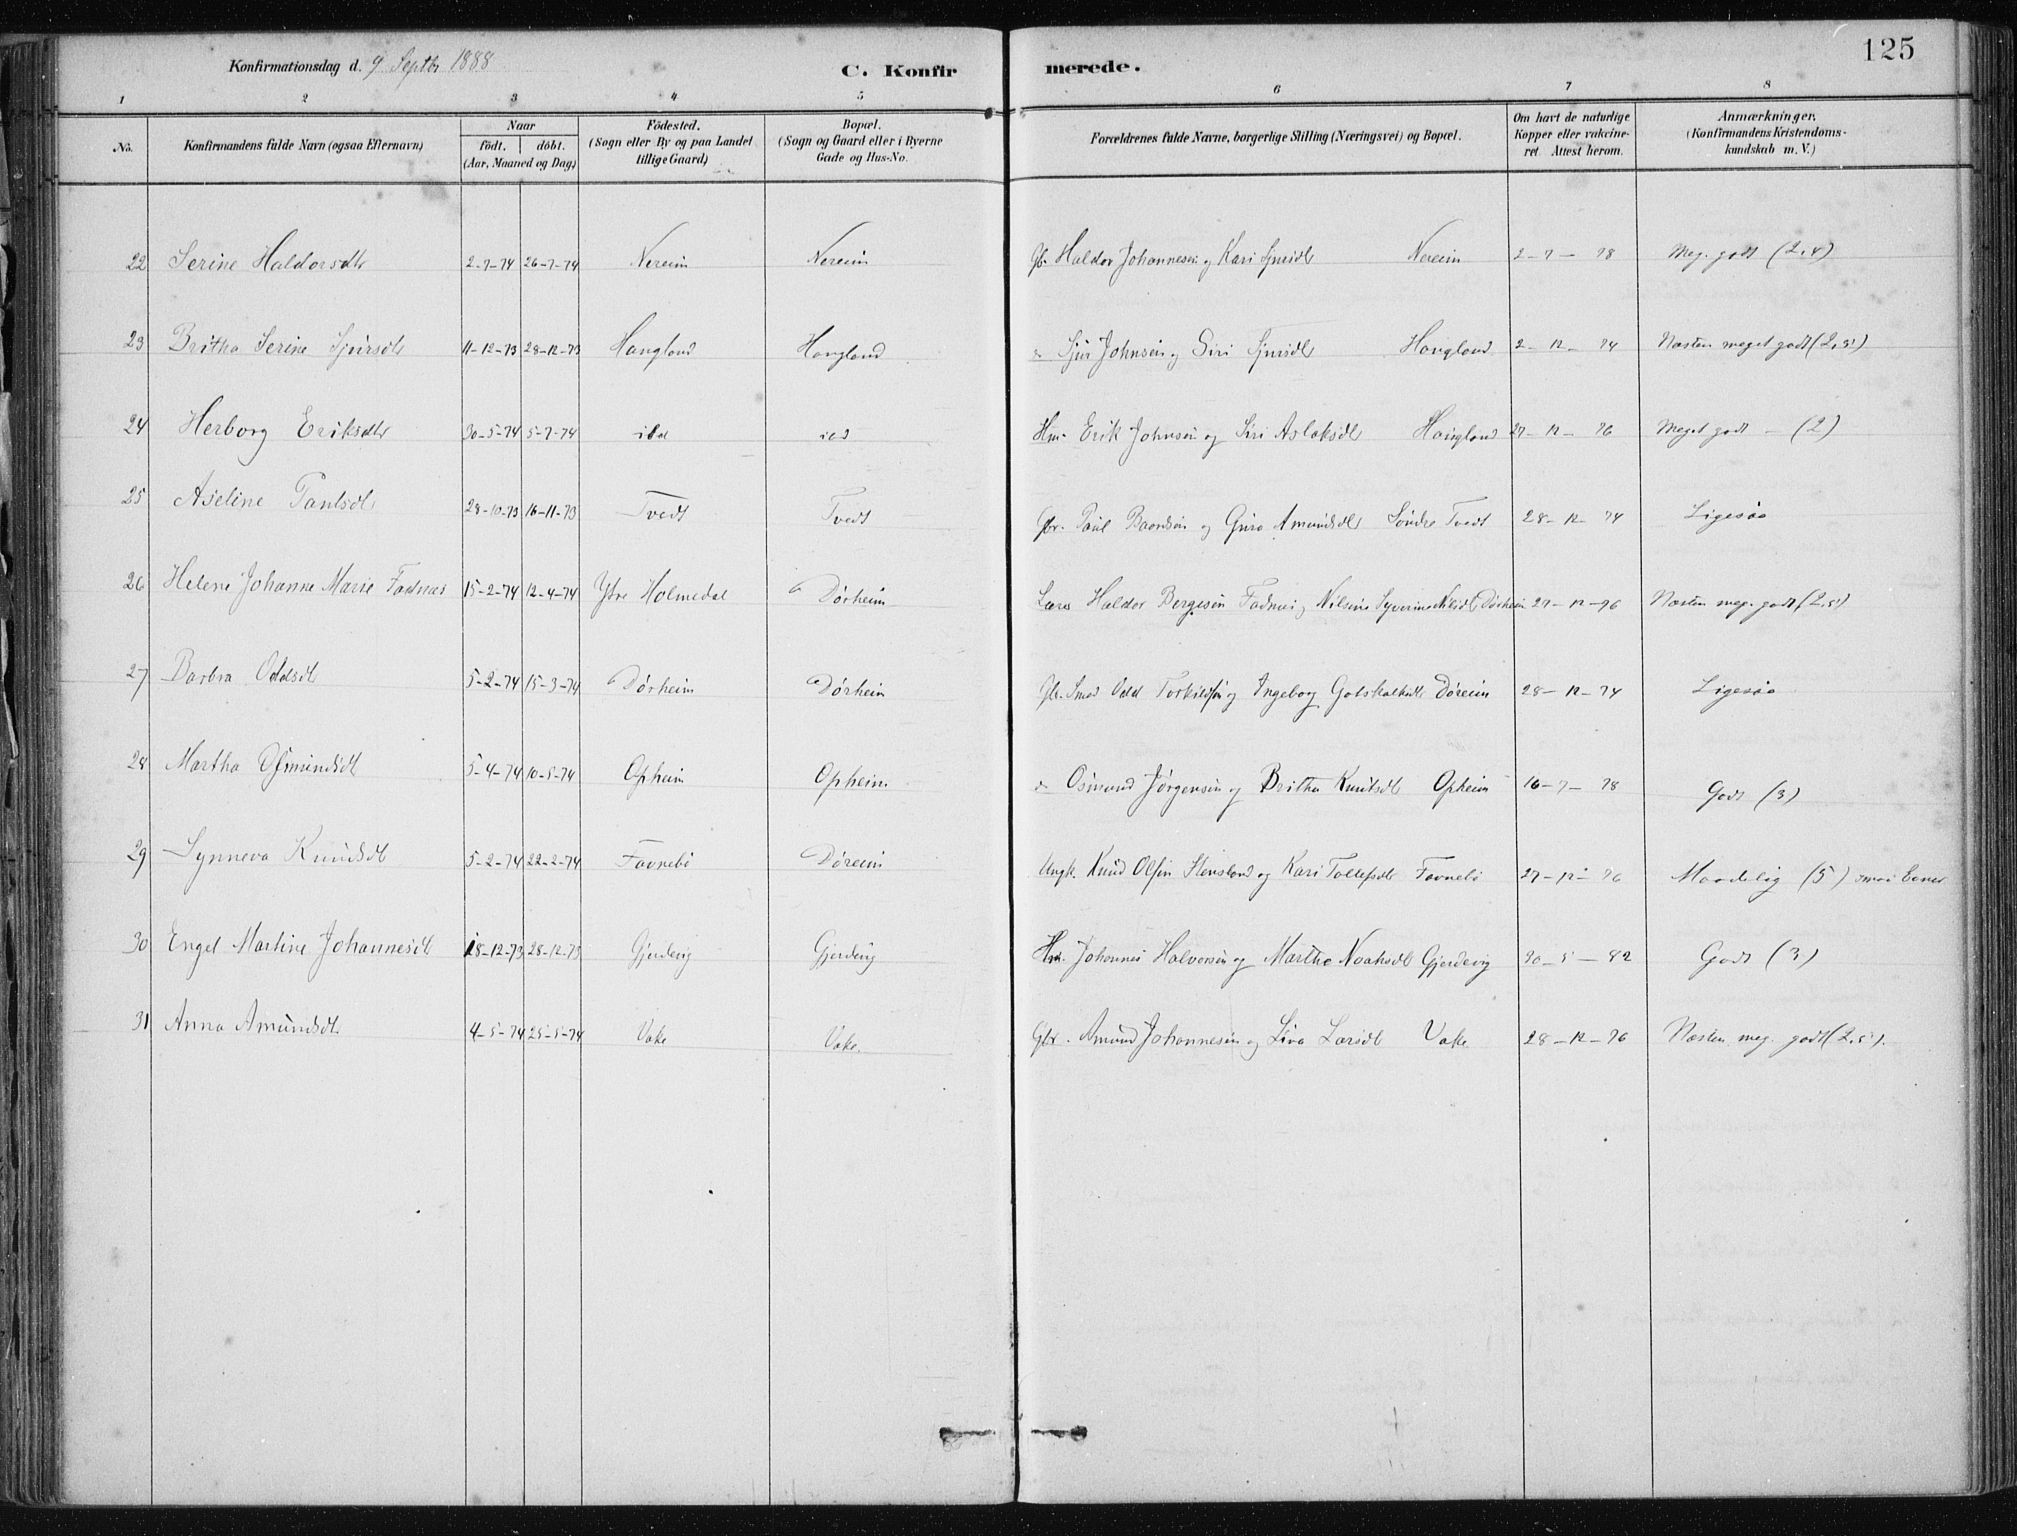 Konfirmationsdag d. 9 Septbr 1888
C. Konfirmerede.
125
1 2 3 4 5 6 7 8
No. Konfirmandens fulde Navn (ogsaa Efternavn) Naar født. døbt. (Aar, Maaned og Dag) Fødested. (Sogn eller By og paa Landet tillige Gaard) Bopæl. (Sogn og Gaard eller i Byerne Gade og Hus-No. Forældrenes fulde Navne, borgerlige Stilling (Næringsvei) og Bopæl. Om havt de naturlige Kopper eller vakcineret. Attest herom. Anmærkninger. (Konfirmandens Kristendomskundskab m. V.)
22 Serine Haldorsdtr 2-7-74 26-7-74 Nereim Nereim Gbr. Haldor Johannesen og Kari Sjursdtr Nereim 2-7-78 Meg. godt (2,4)
23 Britha Serine Sjursdtr 11-12-73 28-12-73 Haugland Haugland " Sjur Johnsen og Siri Sjursdtr Haugland 2-12-74 Næsten meget godt (2,5)
24 Herborg Eriksdtr 30-5-74 5-7-74 ibd ibd Hm. Erik Johnsen og Siri Aslaksdtr Haugland 27-12-76 Meget godt - (2)
25 Aseline Paulsdtr 28-10-73 16-11-73 Tvedt Tvedt Gbr. Paul Baardsen og Guro Amundsdtr Søndre Tvedt 28-12-74 Ligesaa
26 Helene Johanne Marie Fadnæs 15-2-74 12-4-74 Ytre Holmedal Dørheim Lærer Haldor Bergesen Fadnes og Nilsine Syverine Nilsdtr Dørheim 27-12-76 Næsten meg. godt (2,5)
27 Barbra Oddsdtr 5-2-74 15-3-74 Dørheim Dørheim Gbr. Smed Odd Torkildsen og Ingeborg Gotskalksdtr Døreim 28-12-74 Ligesaa
28 Martha Osmundsdtr 5-4-74 10-5-74 Opheim Opheim " Osmund Jørgensen og Britha Knutsdtr Opheim 16-7-78 Godt (3)
29 Synneva Knudsdtr 5-2-74 22-2-74 Favnebø Døreim Ungk. Knud Olsen Stensland og Kari Tollefsdtr Favnebø 27-12-76 Maadelig (5) smaa Evner
30 Engel Martine Johannesdtr 18-12-73 28-12-73 Gjerdevig Gjerdevig Hm. Johannes Halvorsen og Martha Noahsdtr Gjerdevig 30-5-82 Godt (3)
31 Anna Amundsdtr 4-5-74 25-5-74 Vake Vake. Gbr. Amund Johannesen og Siva Larsdtr Vake 28-12-76 Næsten meg. godt (2,5).